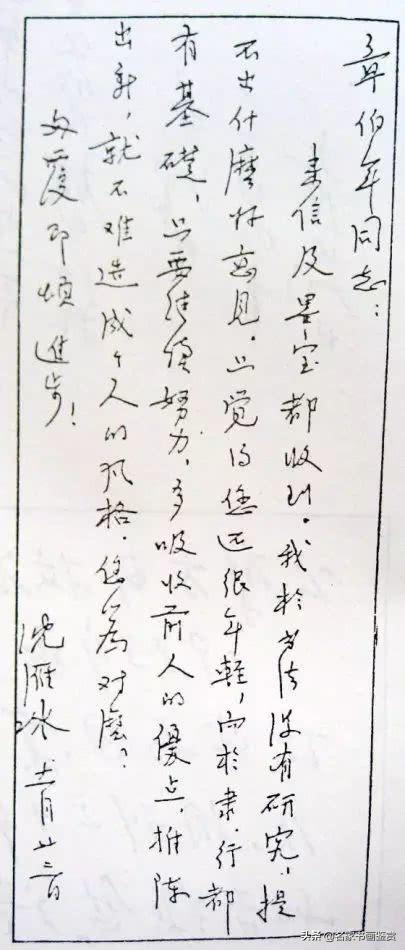 章伯年同志：
来信及墨宝都收到。我於书法没有研究，提
不出什麼好意見。只觉得您还很年輕，而於隶、行都
有基礎，只要继续努力，多吸收前人的優点，推陈
出新，就不难造成个人的风格。您以為对麼？
匆覆即颂進步！
沈雁冰 十一月廿三日
头条 @名家书画鉴赏